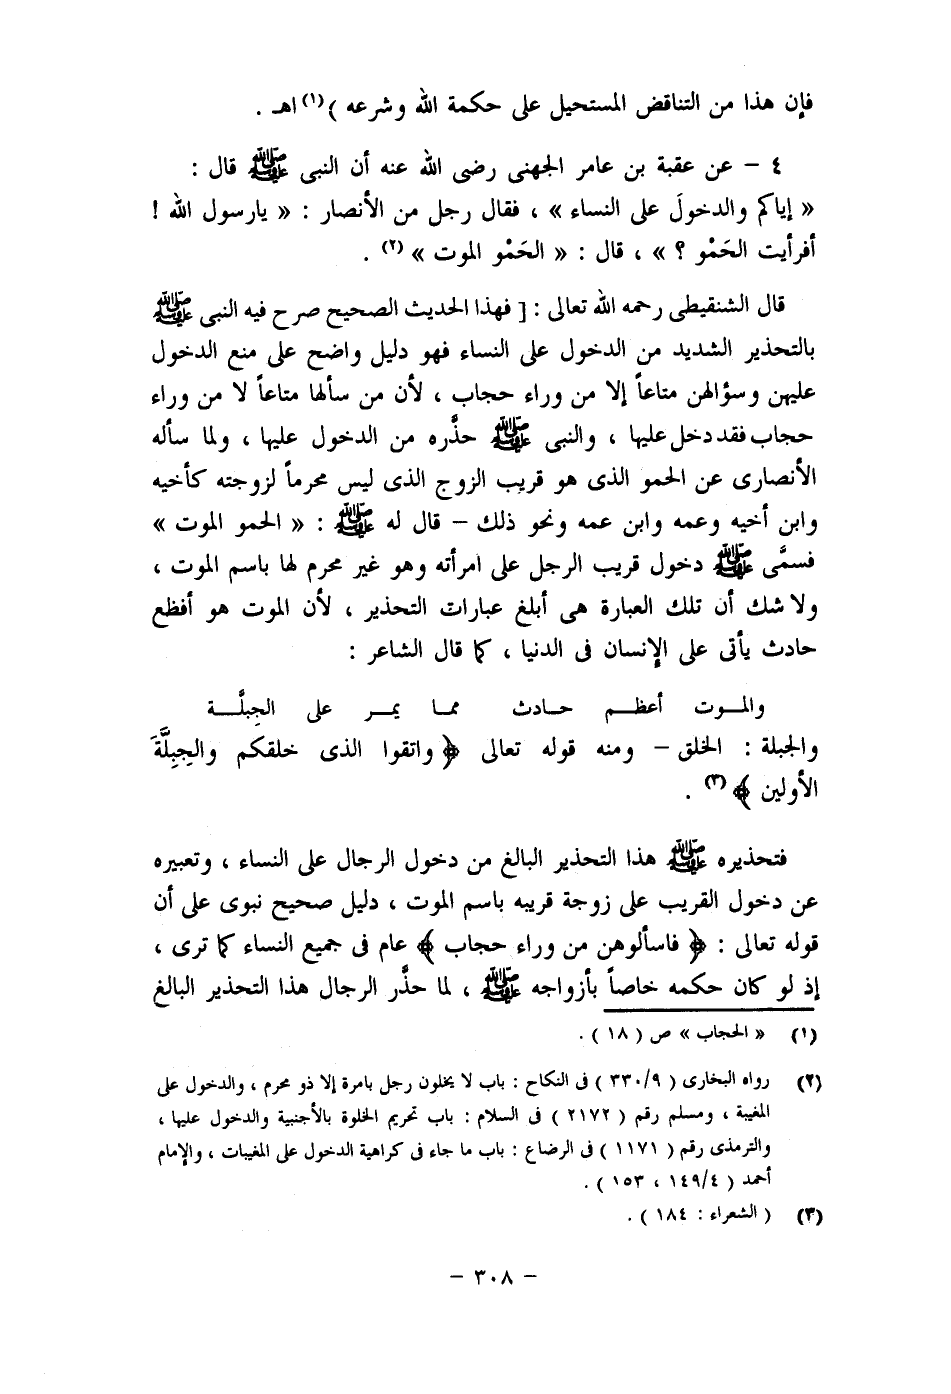 فإن هذا من التناقض المستحيل على حكمة الله وشرعه )(١) اهـ .
٤ – عن عقبة بن عامر الجهنى رضى الله عنه أن النبى ﷺ قال :
« إياكم والدخولَ على النساء » ، فقال رجل من الأنصار : « يارسول الله !
أفرأيت الحَمْو ؟ » ، قال : « الحَمْو الموت » (٢) .
قال الشنقيطى رحمه الله تعالى : [ فهذا الحديث الصحيح صرح فيه النبى ﷺ
بالتحذير الشديد من الدخول على النساء فهو دليل واضح على منع الدخول
عليهن وسؤالهن متاعاً إلا من وراء حجاب ، لأن من سألها متاعاً لا من وراء
حجاب فقد دخل عليها ، والنبى ﷺ حذَّره من الدخول عليها ، ولما سأله
الأنصارى عن الحمو الذى هو قريب الزوج الذى ليس محرماً لزوجته كأخيه
وابن أخيه وعمه وابن عمه ونحو ذلك – قال له ﷺ : « الحمو الموت »
فسمَّى ﷺ دخول قريب الرجل على امرأته وهو غير محرم لها باسم الموت ،
ولا شك أن تلك العبارة هى أبلغ عبارات التحذير ، لأن الموت هو أفظع
حادث يأتى على الإنسان فى الدنيا ، كما قال الشاعر :
والمــوت أعظــم حــادث ممـا يمــر على الجِبلَّــة
والجبلة : الخلق – ومنه قوله تعالى ﴿ واتقوا الذى خلقكم والجِبِلَّةَ
الأولين ﴾ (٣) .
فتحذيره ﷺ هذا التحذير البالغ من دخول الرجال على النساء ، وتعبيره
عن دخول القريب على زوجة قريبه باسم الموت ، دليل صحيح نبوى على أن
قوله تعالى : ﴿ فاسألوهن من وراء حجاب ﴾ عام فى جميع النساء كما ترى ،
إذ لو كان حكمه خاصاً بأزواجه ﷺ ، لما حذَّر الرجال هذا التحذير البالغ
(١) « الحجاب » ص ( ١٨ ) .
(٢) رواه البخارى ( ٣٣٠/٩ ) فى النكاح : باب لا يخلون رجل بامرة إلا ذو محرم ، والدخول على
المغيبة ، ومسلم رقم ( ٢١٧٢ ) فى السلام : باب تحريم الخلوة بالأجنبية والدخول عليها ،
والترمذى رقم ( ١١٧١ ) فى الرضاع : باب ما جاء فى كراهية الدخول على المغيبات ، والإمام
أحمد ( ١٤٩/٤ ، ١٥٣ ) .
(٣) ( الشعراء : ١٨٤ ) .
– ٣٠٨ –